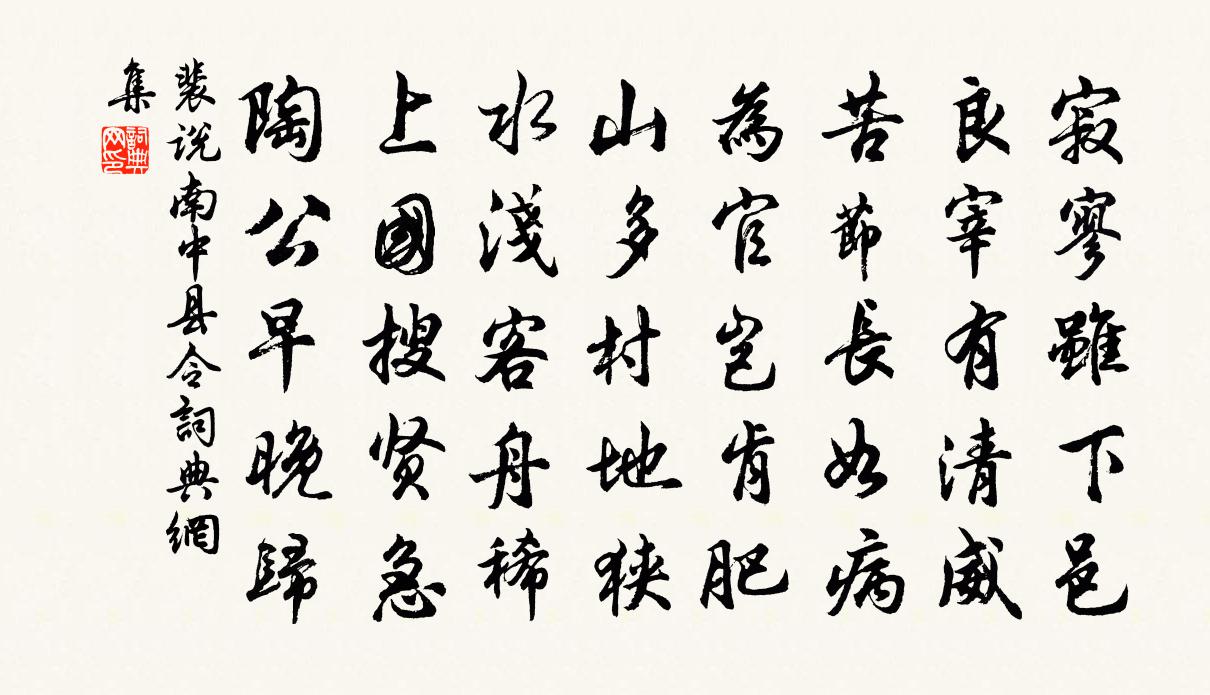 寂寥雖下邑
良宰有清威
苦節長如病
為官豈肯肥
山多村地狹
水淺客舟稀
上國搜贤急
陶公早晚歸
裴说南中县令詞典網
集
詞典网印